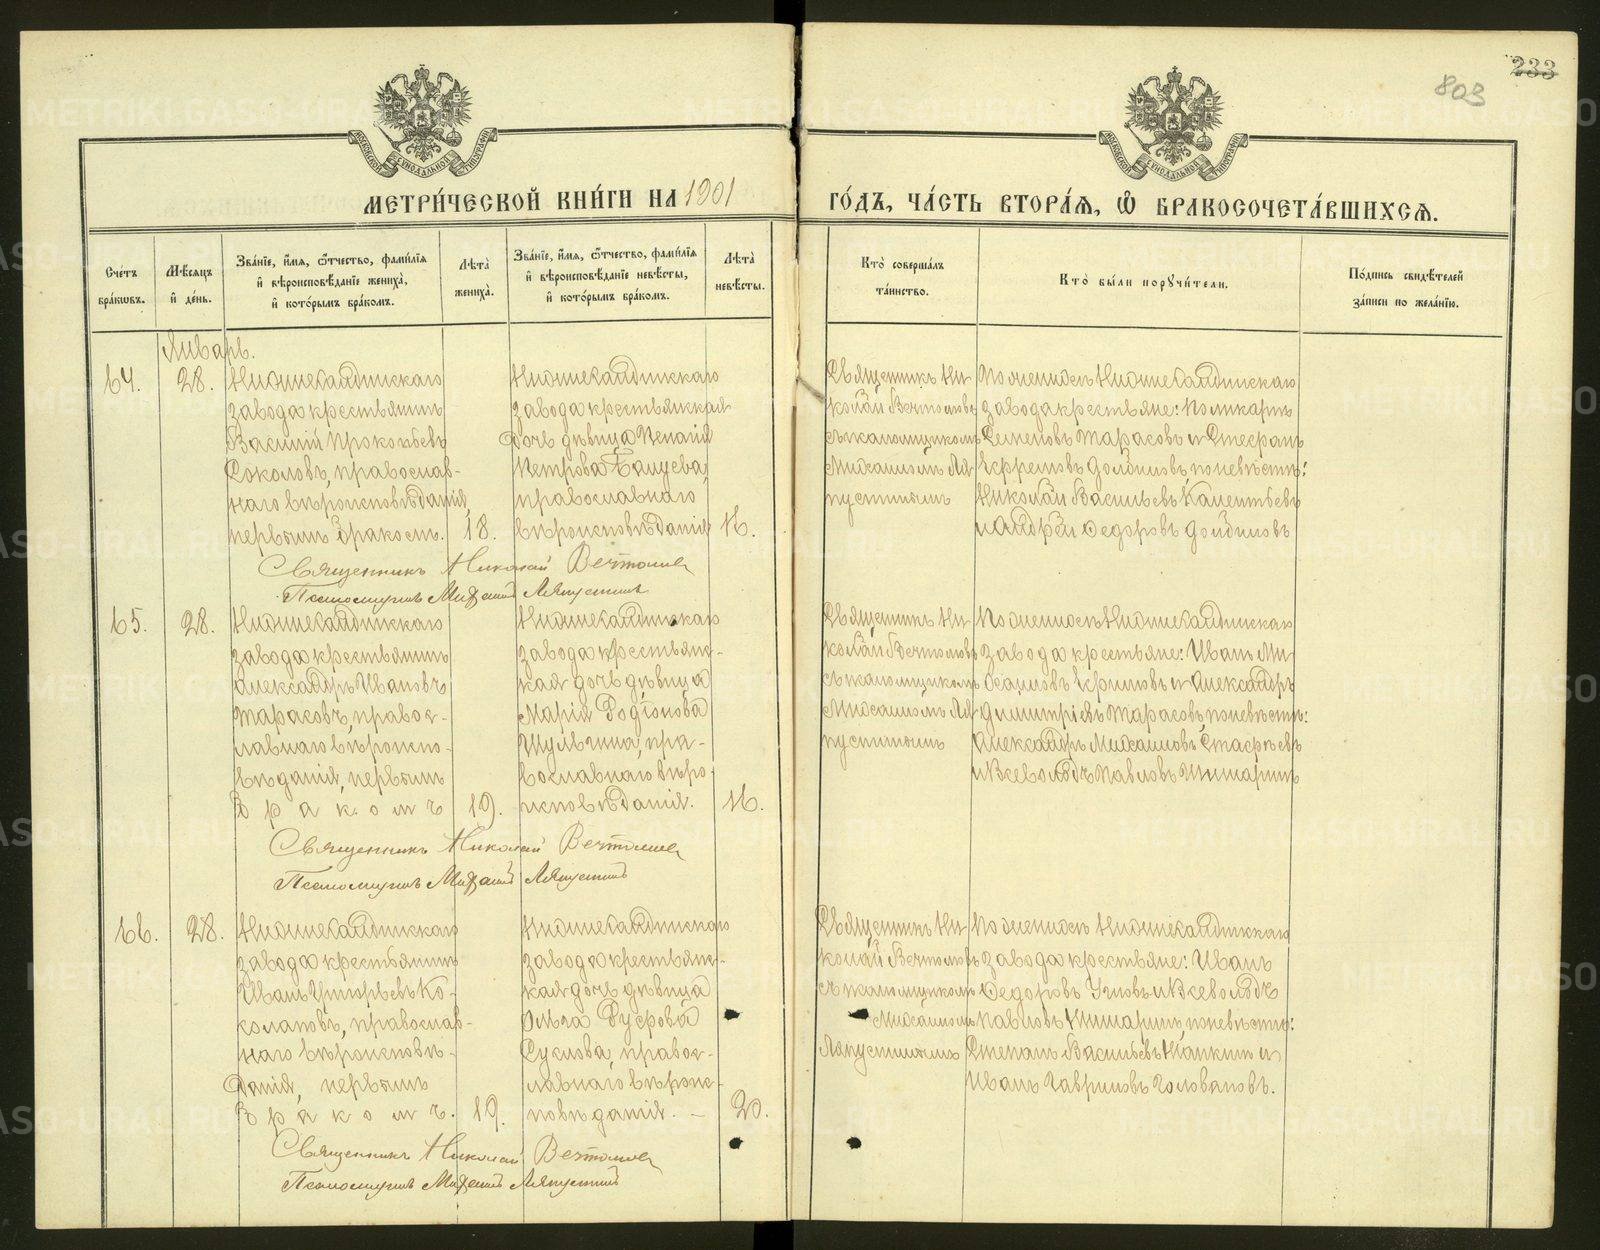 233
803
МЕТРИ́ЧЕСКОЙ КНИ́ГИ НА 1901 ГО́ДЪ, ЧА́СТЬ ВТОРА́Я, Ѿ БРАКОСОЧЕТА́ВШИХСЯ.
Сче́тъ бра́кωвъ.
Мѣ́сяцъ и҆ де́нь.
Зва́нїе, и҆́мя, ѻ҆́тчество, фами́лїя и҆ вѣроисповѣ́данїе жениха̀, и҆ кото́рымъ бра́комъ.
Лѣ́та жениха̀.
Зва́нїе, и҆́мя, ѻ҆́тчество, фами́лїя и҆ вѣроисповѣ́данїе невѣ́сты, и҆ кото́рымъ бра́комъ.
Лѣ́та невѣ́сты.
Кто̀ соверша́лъ та́инство.
Кто̀ бы́ли поручи́тели.
По́дпись свидѣ́телей за́писи по жела́нїю.
Январь.
64.
28.
Нижнесалдинскаго
завода крестьянинъ
Василій Прокопьевъ
Соколовъ, православ-
наго вѣроисповѣданія,
первымъ бракомъ.
18.
Нижнесалдинскаго
завода крестьянская
дочь дѣвица
Петрова
православнаго
вѣроисповѣданія
16.
Священникъ Ни-
колай Вечтомовъ
съ псаломщикомъ
Михаиломъ Ля-
пустинымъ
По женихѣ Нижнесалдинскаго
завода крестьяне: Поликарпъ
Семеновъ Тарасовъ и Стефанъ
Ефремовъ по невѣстѣ:
Николай Васильевъ
и Андрей Федоровъ
Священникъ Николай Вечтомовъ
Псаломщикъ Михаилъ Ляпустинъ
65.
28.
Нижнесалдинскаго
завода крестьянинъ
Александръ Ивановъ
Тарасовъ, правос-
лавнаго вѣроиспо-
вѣданія, первымъ
бракомъ
19.
Нижнесалдинскаго
завода крестьянс-
кая дочь дѣвица
Марія Родіонова
Шульгина, пра-
вославнаго вѣро-
исповѣданія.
16.
Священникъ Ни-
колай Вечтомовъ
съ псаломщикомъ
Михаиломъ Ля-
пустинымъ
По женихѣ Нижнесалдинскаго
завода крестьяне: Иванъ
и Александръ
Димитріевъ Тарасовъ, по невѣстѣ:
Александръ Михаиловъ
и Всеволодъ Павловъ
Священникъ Николай Вечтомовъ
Псаломщикъ Михаилъ Ляпустинъ
66.
28.
Нижнесалдинскаго
завода крестьянинъ
Иванъ Григорьевъ Ко-
, православ-
наго вѣроисповѣ-
данія, первымъ
бракомъ.
19.
Нижнесалдинскаго
завода крестьянс-
кая дочь дѣвица
Ольга
правос-
лавнаго вѣроис-
повѣданія. —
20.
Священникъ Ни-
колай Вечтомовъ
съ псаломщикомъ
Михаиломъ
Ляпустинымъ
По женихѣ Нижнесалдинскаго
завода крестьяне: Иванъ
Федоровъ и Всеволодъ
Павловъ по невѣстѣ:
Степанъ Васильевъ и
Иванъ Гавриловъ Головановъ.
Священникъ Николай Вечтомовъ
Псаломщикъ Михаилъ Ляпустинъ
METRIKI.GASO-URAL.RU